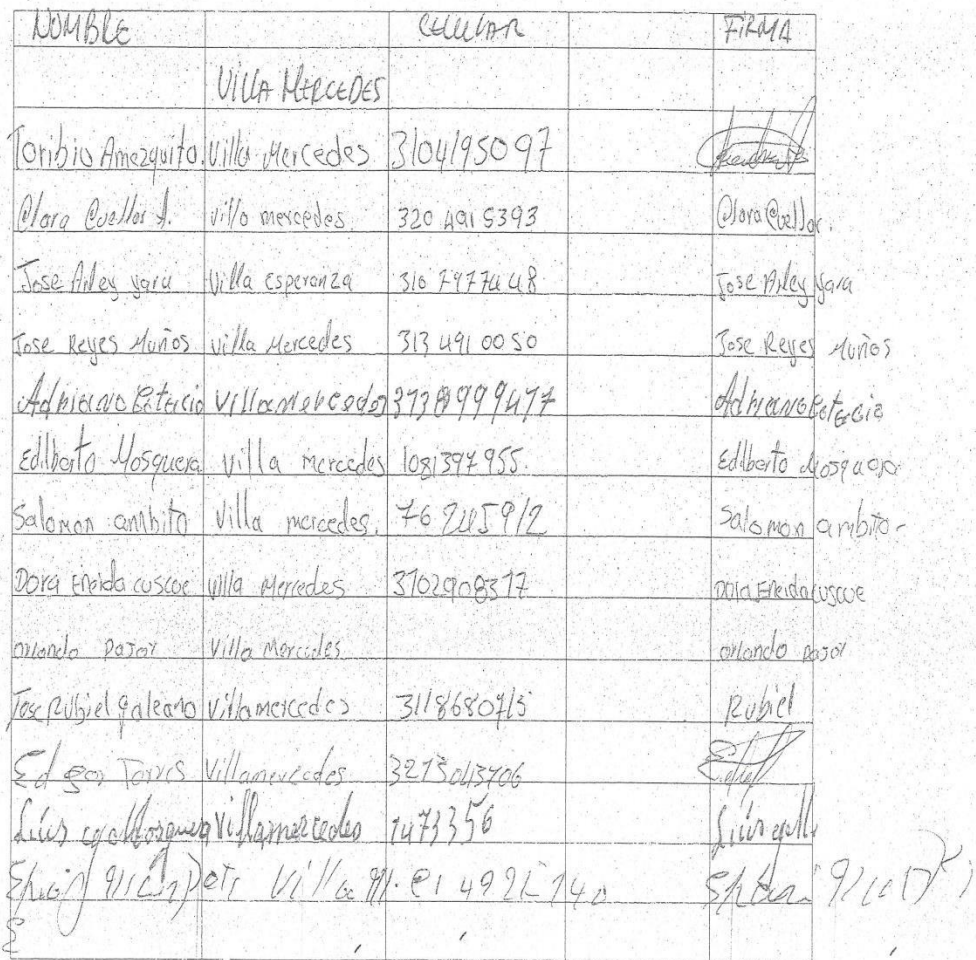 NOMBRE CELULAR FIRMA
VILLA MERCEDES
Toribio Amezquito. Villa Mercedes 3104195097
Clara Cuellar A. Villa mercedes. 320 491 5393 Clara Cuellar.
Jose Arley yara Villa Esperanza 310 7977448 Jose Arley yara
Jose Reyes Muños Villa Mercedes 313 491 00 50 Jose Reyes Muños
Adriano Villa Mercedes Adriano
Edilberto Mosquera Villa mercedes 1081397955. Edilberto Mosquera
Salomon ambito Villa mercedes. 76 245912 Salomon ambito-
Dora Eneida cuscue Villa Mercedes 3102908317 Dora Eneida cuscue
orlando Villa Mercedes orlando
Jose Rubiel galeano Villamercedes 3118680715 Rubiel
Edgar Torres Villamercedes 3213043706
Luis Mosquera Villamercedes 1473356 Luis
Villa